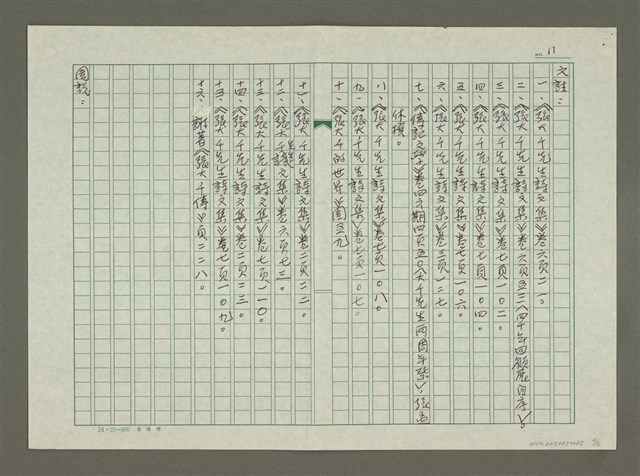 NO. 17
文註：
一、《張大千先生詩文集》卷六頁二一。
二、《張大千先生詩文集》卷六頁五三〈四十年回顧展自序〉。
三、《張大千先生詩文集》卷七頁一〇二。
四、《張大千先生詩文集》卷七頁一〇四。
五、《張大千先生詩文集》卷七頁一〇六。
六、《張大千先生詩文集》卷三頁一二七。
七、《傳記文學》卷四六期四頁五〇〈大千先生兩周年祭〉，張
休撰。
八、《張大千先生詩文集》卷七頁一〇八。
九、《張大千先生詩文集》卷七頁一〇七。
十、《張大千的世界》圖五九。
十一、《張大千先生詩文集》卷二頁二二。
十二、《張大千先生詩文集》卷六頁七三。
十三、《張大千先生詩文集》卷七頁一一〇。
十四、《張大千先生詩文集》卷二頁二三。
十五、《張大千先生詩文集》卷七頁一〇九。
十六、謝著《張大千傳》頁二二八。
圖說：
24×25=600